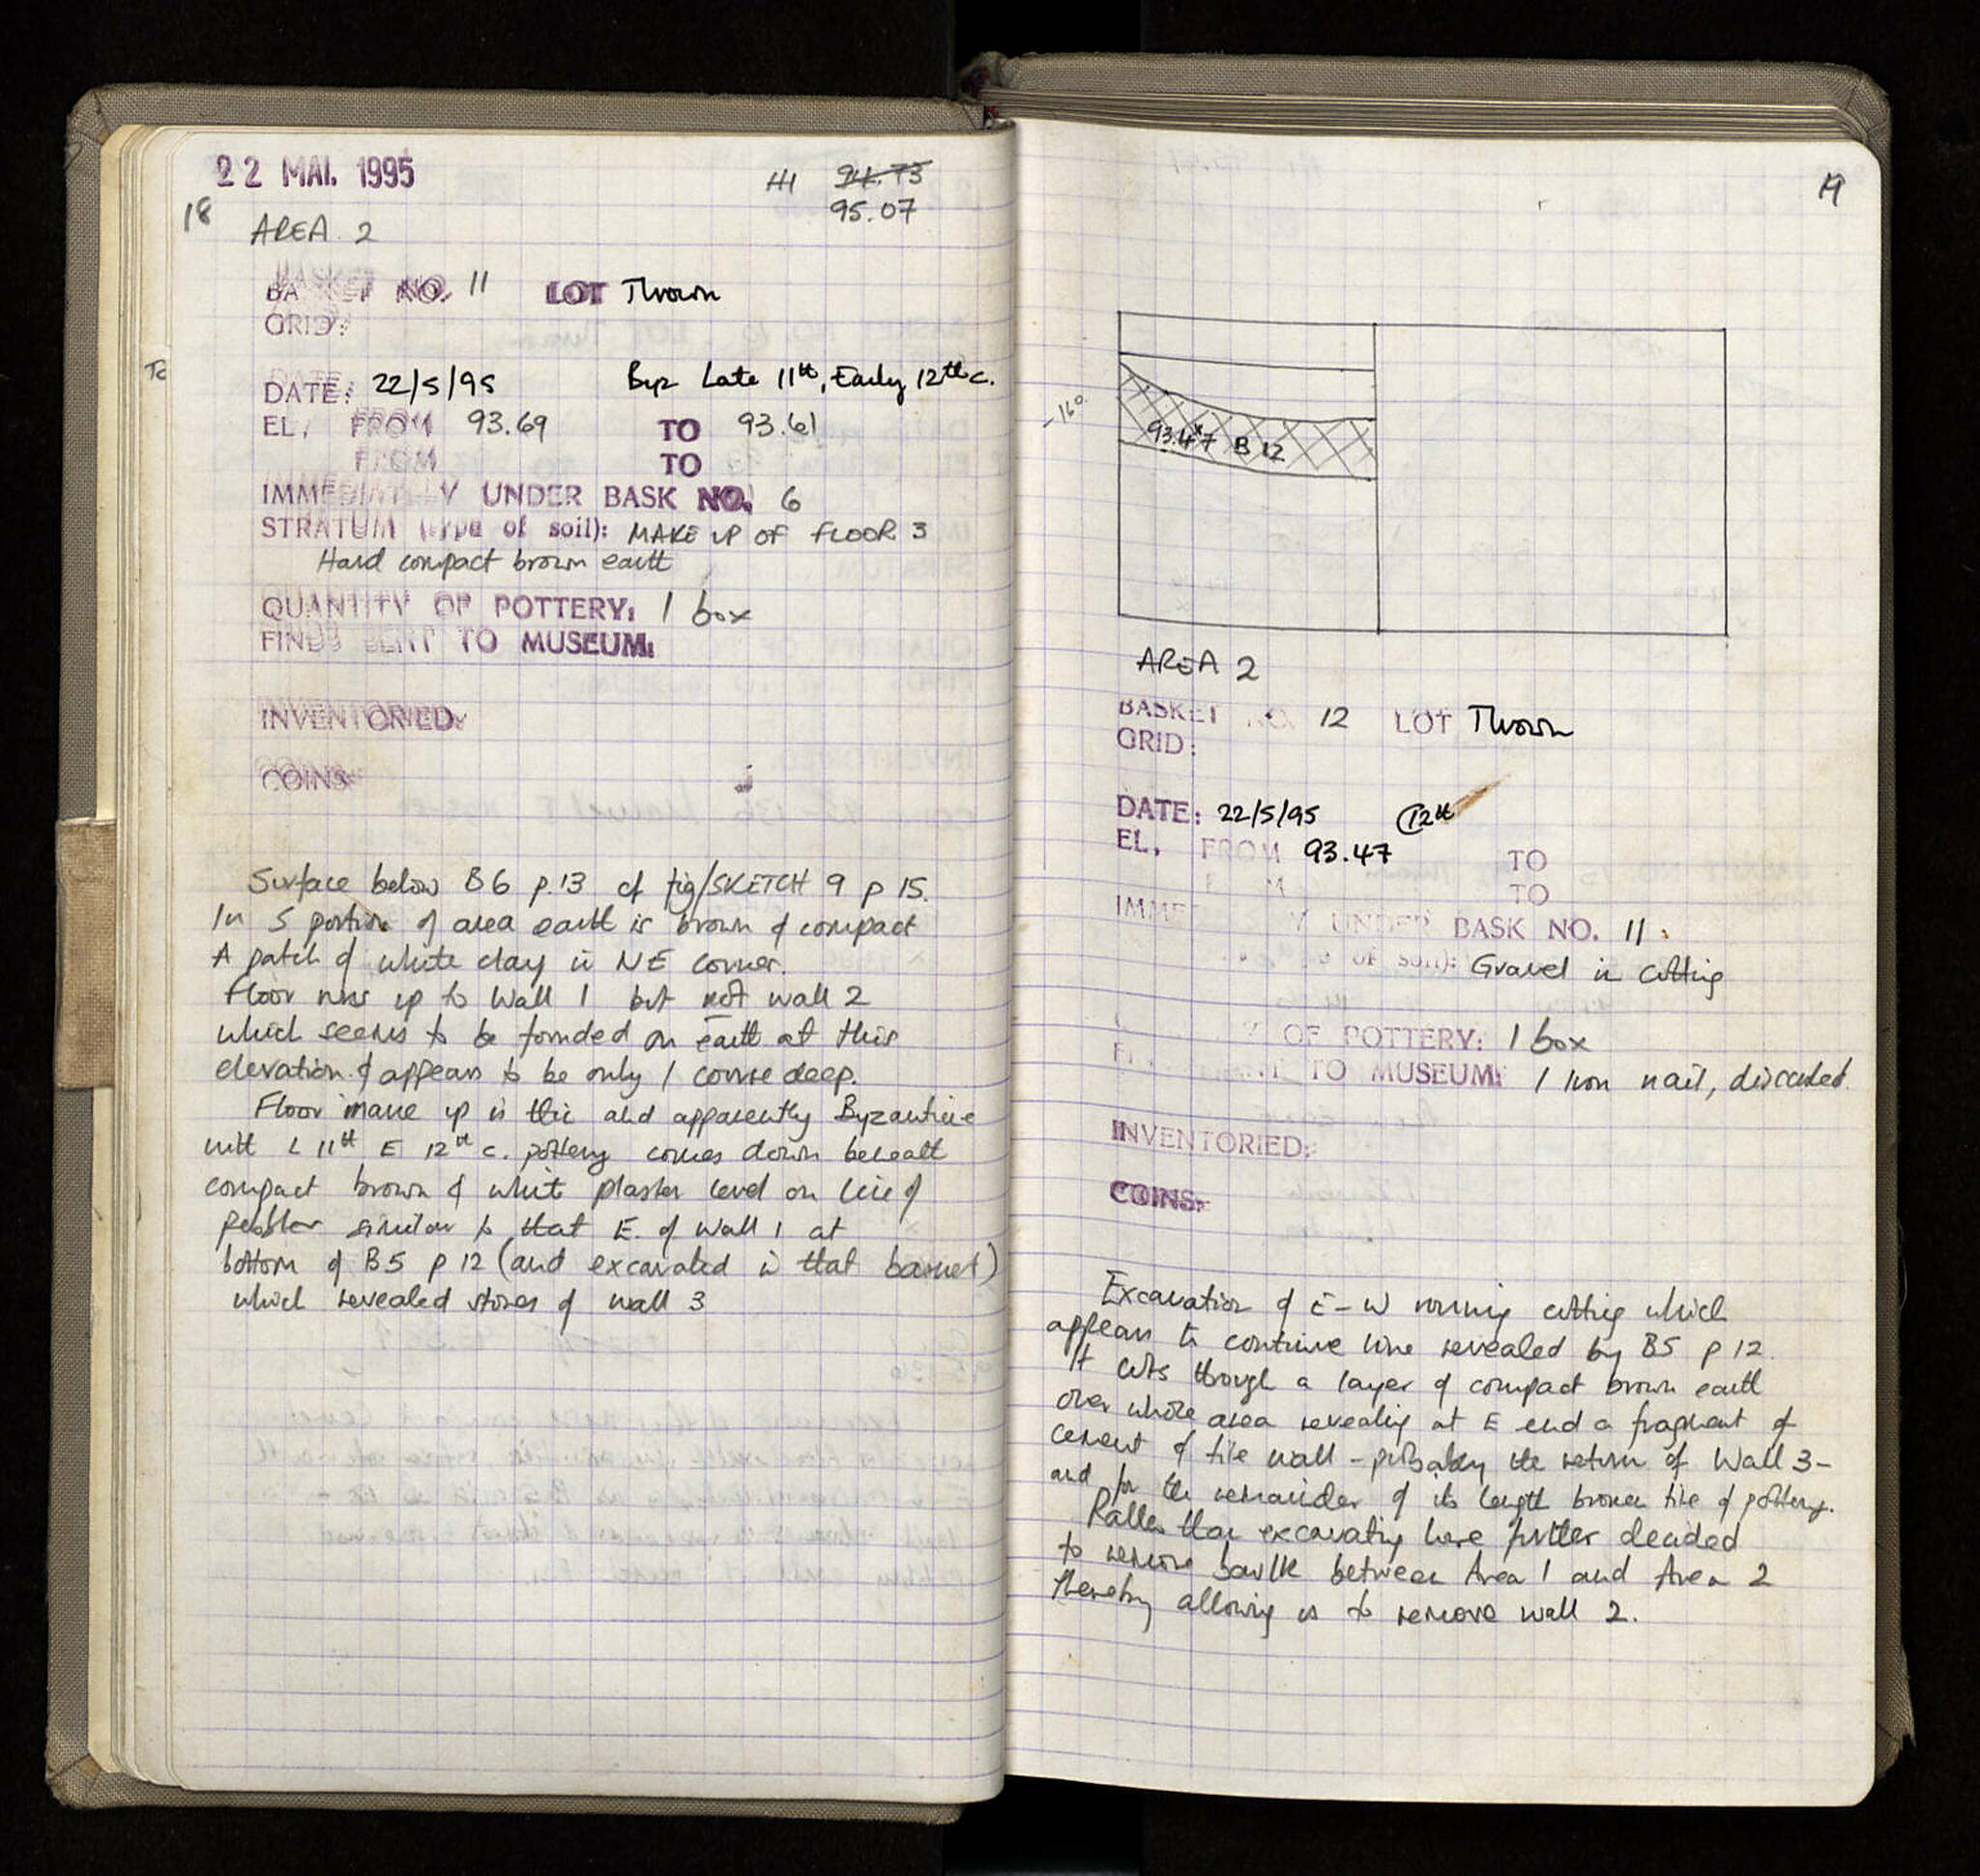 22 MAI. 1995
HI 94.73
95.07
18
AREA 2
BASKET NO. 11 LOT Thrown
GRID:
To
DATE: 22/5/95 Byz Late 11th, Early 12th c.
EL, FROM 93.69 TO 93.61
FROM TO
IMMEDIATELY UNDER BASK NO. 6
STRATUM (type of soil): MAKE UP OF FLOOR 3
Hard compact brown earth
QUANTITY OF POTTERY: 1 box
FINDS SENT TO MUSEUM:
INVENTORIED:
COINS:
Surface below B6 p.13 cf fig/SKETCH 9 p 15.
In S portion of area earth is brown & compact
A patch of white clay in NE corner.
Floor runs up to Wall 1 but not wall 2
which seems to be founded on earth at this
elevation & appears to be only 1 course deep.
Floor make up is thic and apparently Byzantine
with L 11th E 12th c. pottery comes down beneath
compact brown & white plaster level on line of
pebbles similar to that E. of Wall 1 at
bottom of B5 p 12 (and excavated in that basket)
which revealed stones of wall 3
19
-160
93.47 B 12
AREA 2
BASKET NO. 12 LOT Thrown
GRID:
DATE: 22/5/95 C12th
EL, FROM 93.47 TO
TO
UNDER BASK NO. 11
of soil): Gravel in cutting
OF POTTERY: 1 box
TO MUSEUM: 1 iron nail, discarded.
INVENTORIED:
COINS:
Excavation of E-W running cutting which
appears to continue line revealed by B5 p 12.
It cuts through a layer of compact brown earth
over whole area revealing at E end a fragment of
cement & tile wall - probably the return of Wall 3 -
and for the remainder of its length broken tile & pottery.
Rather than excavating here further decided
to remove baulk between Area 1 and Area 2
thereby allowing us to remove wall 2.